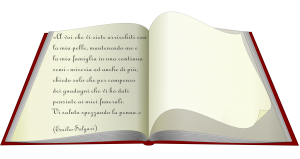 «A voi che vi siete arricchiti con
la mia pelle, mantenendo me e
la mia famiglia in una continua
semi-miseria od anche di più,
chiedo solo che per compenso
dei guadagni che vi ho dato
pensiate ai miei funerali.
Vi saluto spezzando la penna.»
(Emilio Salgari)